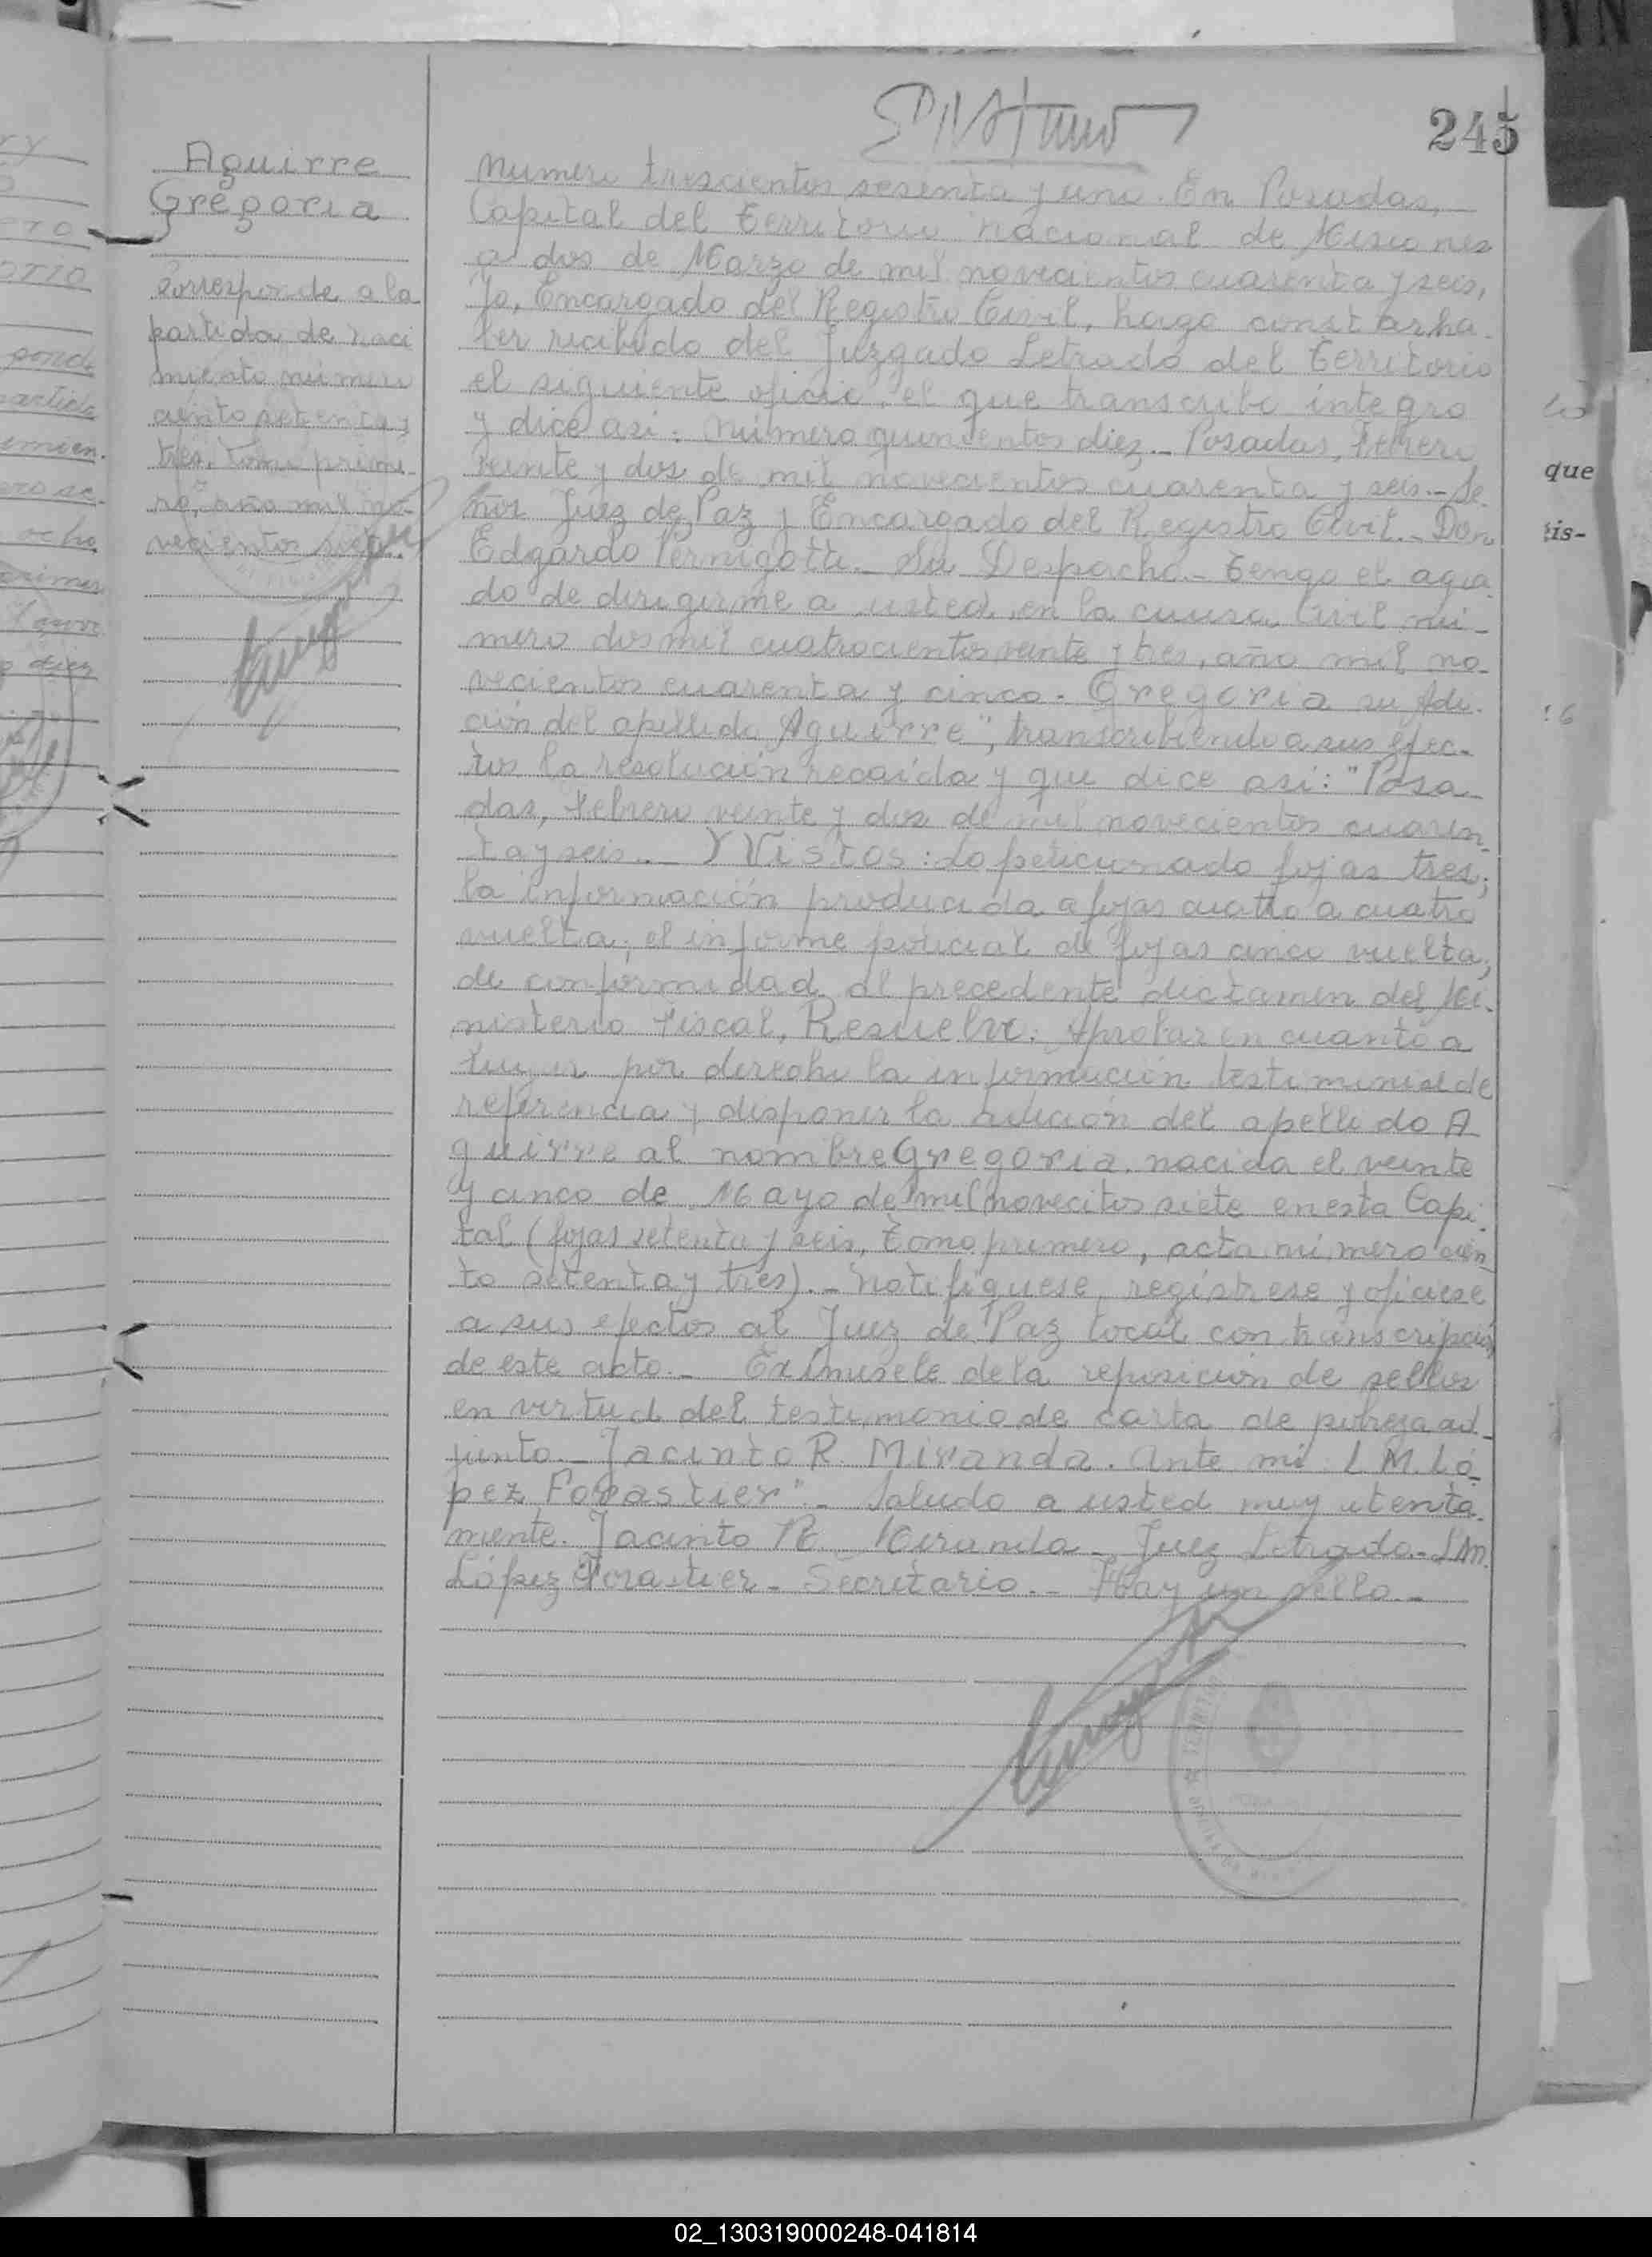 245
Aguirre
Gregoria
Corresponde a la
partida de naci
miento número
ciento setenta y
tres, tomo prime-
ro, año mil no-
vecientos siete.
Número trescientos sesenta y uno. En Posadas,
Capital del Territorio nacional de Misiones
a dos de Marzo de mil novecientos cuarenta y seis,
Yo, Encargado del Registro Civil, hago constar ha-
ber recibido del Juzgado Letrado del Territorio
el siguiente oficio, el que transcribo integro
y dice asi: Número quinientos diez.- Posadas, Febrero
veinte y dos de mil novecientos cuarenta y seis.- Se-
ñor Juez de Paz y Encargado del Registro Civil.- Don
Edgardo Pernigotti.- Su Despacho.- Tengo el agra
do de dirigirme a usted en la causa Civil nú-
mero dos mil cuatrocientos veinte y tres, año mil no-
vecientos cuarenta y cinco. Gregoria su Adi-
ción del apellido Aguirre", transcribiendo a sus efec-
tos la resolución recaída y que dice asi: "Posa-
das, Febrero veinte y dos de mil novecientos cuaren-
ta y seis.- Y Vistos: Lo peticionado fojas tres;
la información producida a fojas cuatro a cuatro
vuelta; el informe policial de fojas cinco vuelta;
de conformidad al precedente dictamen del Mi-
nisterio Fiscal, Resuelvo: Aprobar en cuanto a
lugar por derecho la información testimonial de
referencia y disponer la adición del apellido A
guirre al nombre Gregoria, nacida el veinte
y cinco de Mayo de mil novecitos siete en esta Capi-
tal (fojas setenta y seis, Tomo primero, acta número cien
to setenta y tres).- Notifíquese, regístrese y ofíciese
a sus efectos al Juez de Paz local con transcripción
de este acto.- Exímesele de la reposición de sellos
en virtud del testimonio de carta de pobreza ad-
junto.- Jacinto R. Miranda. Ante mí: L. M. Ló-
pez Forastier".- Saludo a usted muy atenta
mente. Jacinto R. Miranda - Juez Letrado.- L.M.
López Forastier - Secretario.- Hay un sello.-
que
tis-
02_130319000248-041814